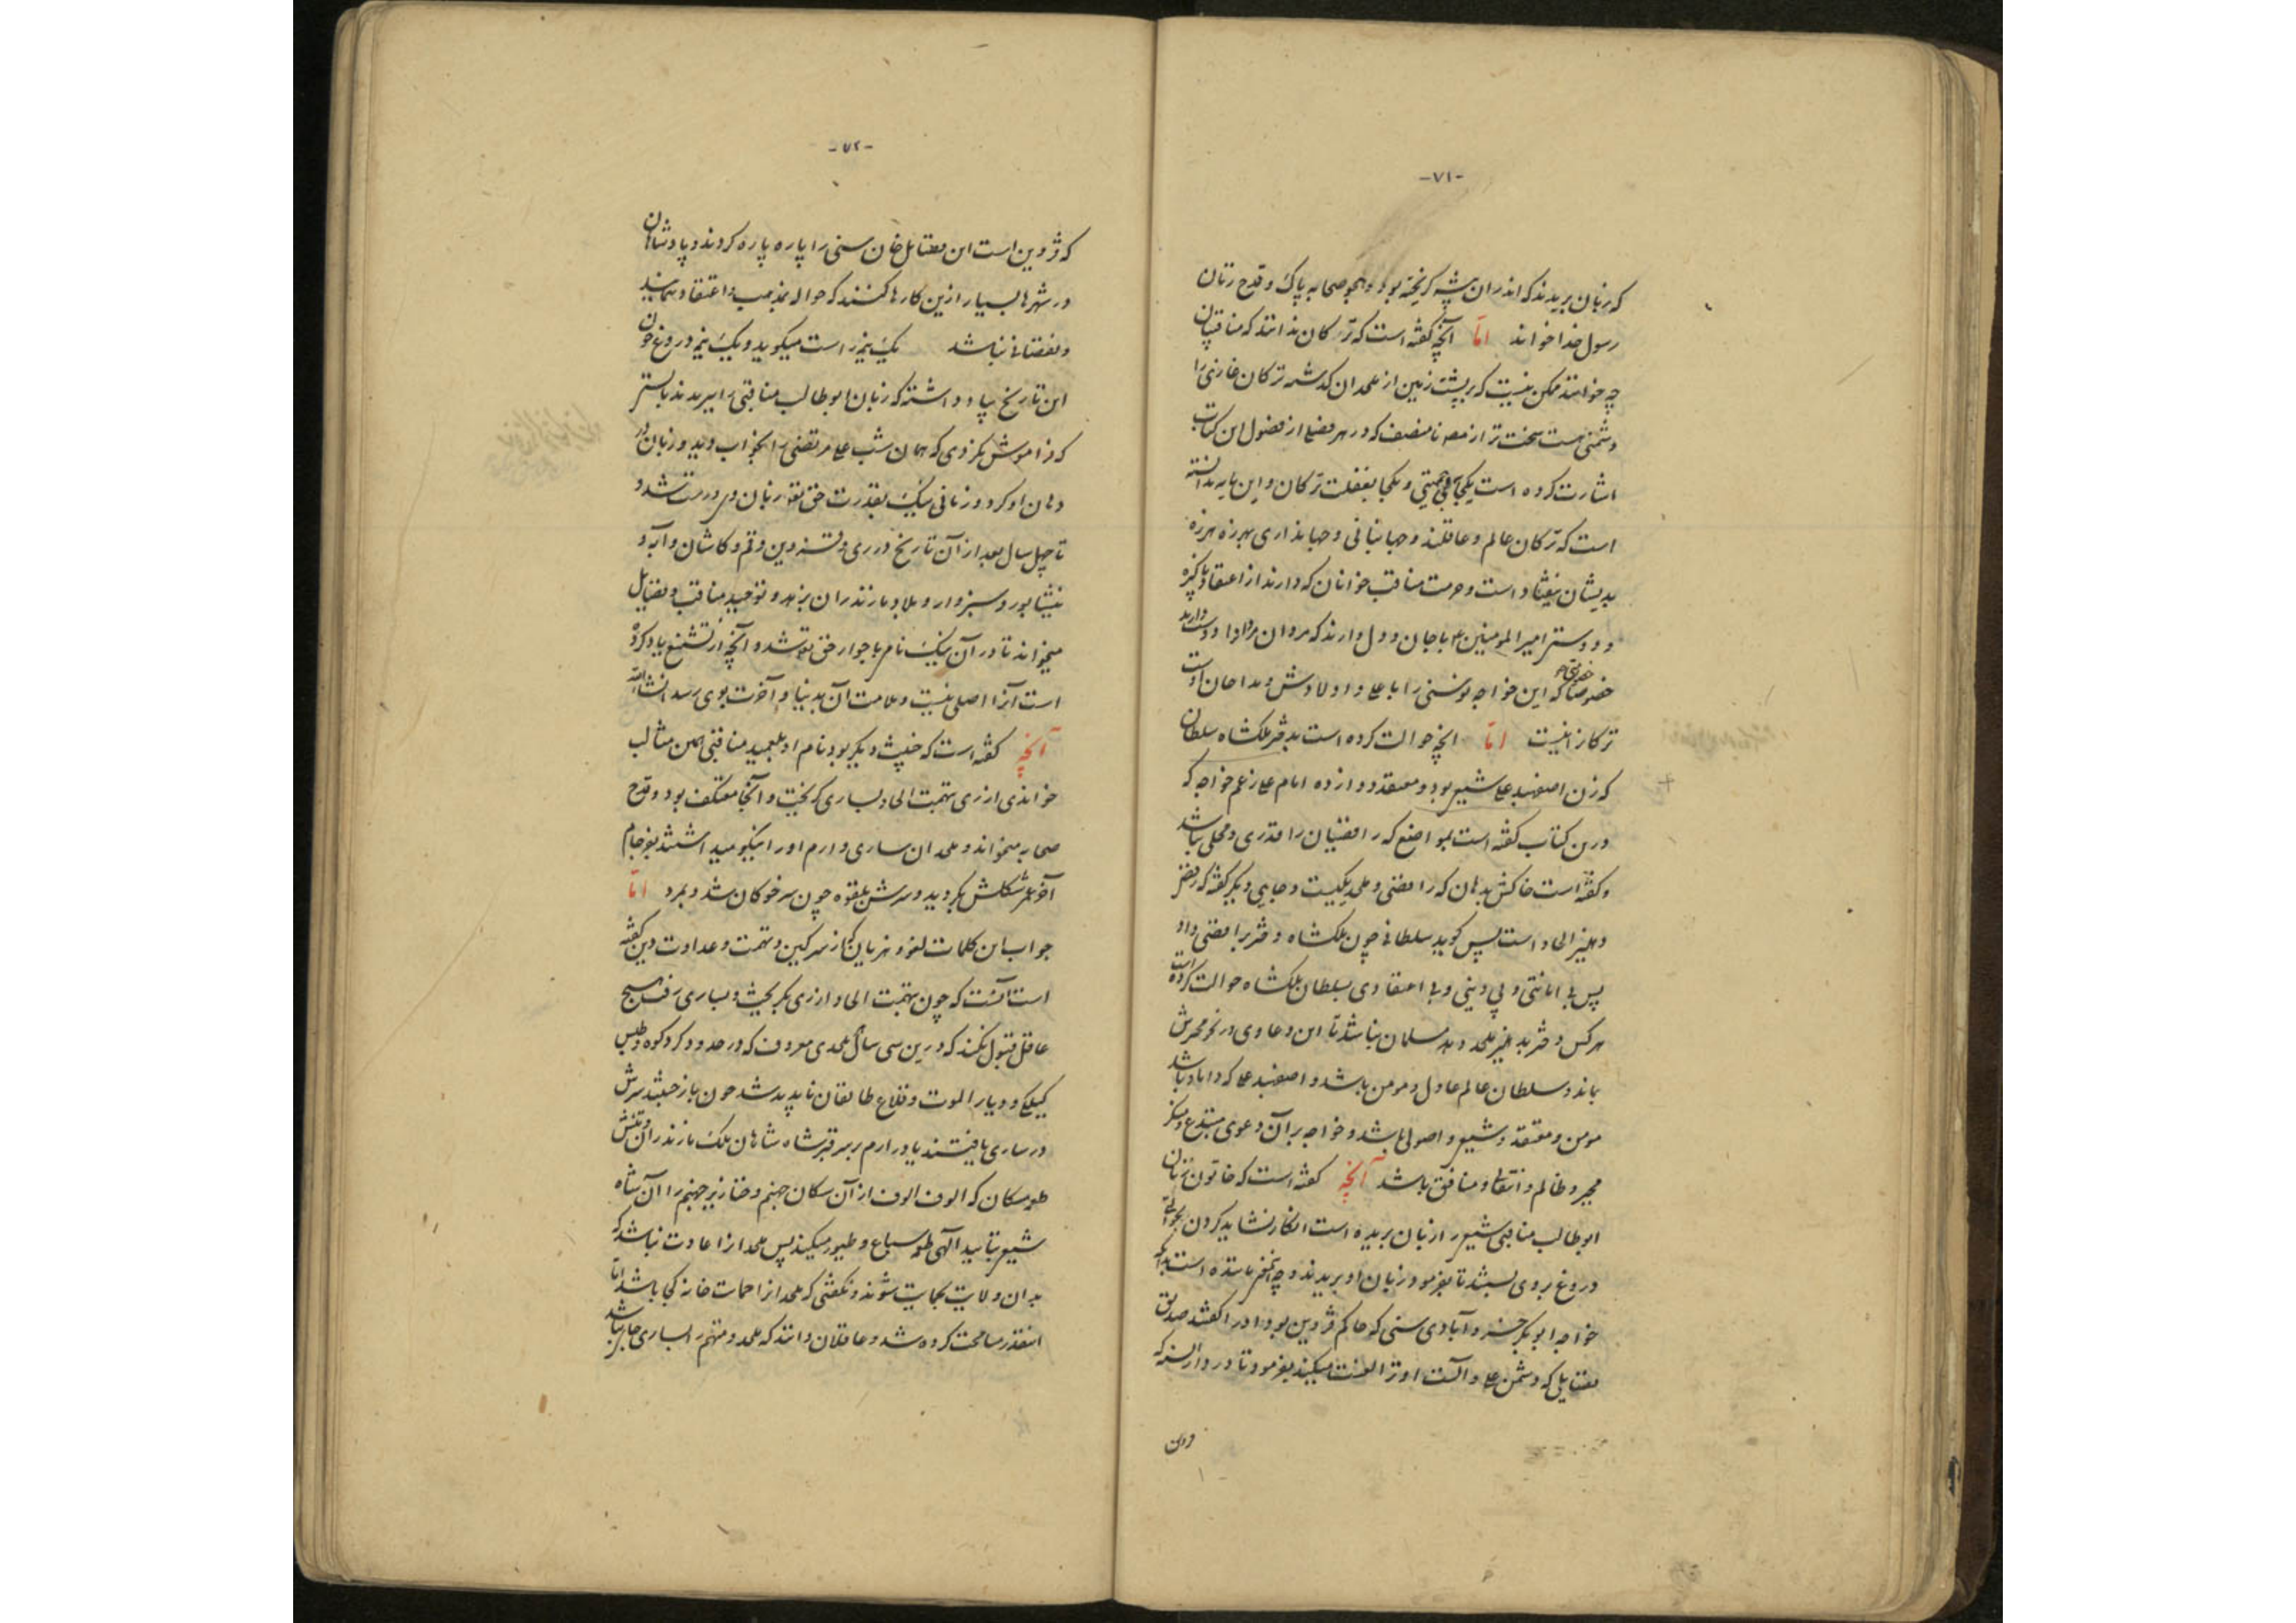 -۷۱-
که زبان بریدند که اندران پیشه گریخته بود و هجو صحابه پاک و قدح زنان
رسول خدا خواند امّا آنچه گفته است که ترکان ندانند که مناقبیان
چه خوانند ممکن نیست که بر پشت زمین از ملحدان گذشته ترکان غازی را
دشمنی هست سخت تر از مصنف نامنصف که در هر فصلی از فصول این کتاب
اشارت کرده است یکجا به بی حمیتی و یکجا بغفلت ترکان و این مایه ندانسته
است که ترکان عالم و عاقلند و جهانبانی و جهانداری بهرزه هرزه
بدیشان نیفتاد است و حرمت مناقب خوانان که دارند از اعتقاد پاکیزه
و دوستی امیر المومنین با جان و دل دارند که مردان مردانرا دوست دارند
خصوصا که این خواجه نوسنی را با علی و اولادش و مداحان اوست
ترکانرا نیست امّا آنچه حوالت کرده است بدختر ملکشاه سلطان
که زن اصفهبد علی شیعی بود و معتقد دوازده امام علی زعم خواجه که
درین کتاب گفته است بمواضع که رافضیان را قدری و محلی نباشد
و گفته است خاکش بدهان که رافضی و ملحد یکیست و جایی دیگر گفته که رفض
دهلیز الحاد است پس گوید سلطانی چون ملکشاه دختر برافضی داد
پس بی امانتی و بی دینی و بی اعتقادی بسلطان ملکشاه حوالت کرده است
هر کس دختر بدهلیز ملحد دهد مسلمان نباشد تا این دعاوی در نحر محرش
بماند و سلطان عالم عادل و مومن باشد و اصفهبد علی که داماد باشد
مومن و معتقد و شیعی و اصولی باشد و خواجه بر آن دعوی مبتدع و منکر
مجبر و ظالم و انتقالی و منافق باشد آنچه گفته است که خاتون زبان
ابوطالب مناقبی شیعی را زبان بریده است انکار نشاید کردن بحوالتی
دروغ بروی بستند تا بفرمود زبان او بریدند و چه نقص مانده است بدانکه
خواجه ابوبکر خسروآبادی سنی که حاکم قزوین بود او را گفتند صدیق
فضایلی که دشمن علی و آلست او ترا لعنت میکند بفرمود تا در دارالسنه که
درین
-۷۲-
که قزوین است این فضایل خان سنی را پاره پاره کردند و پادشاهان
در شهرها بسیار ازین کارها کنند که حواله بمذهب و اعتقاد نماید
و نقصانی نباشد یک نیمه راست میگوید و یک نیمه دروغ چون
این تاریخ بیاد داشته که زبان ابوطالب مناقبی را ببریدند بایستی
که فراموش نکردی که همان شب علی مرتضی را بخواب دید و زبان در
دهان او کرد و زمانی بیک بقدرت حق تعه زبان وی درست شد و
تا چهل سال بعد از آن تاریخ در ری و قزوین و قم و کاشان و آبه و
نیشابور و سبزوار و بلاد مازندران بزهد و توحید مناقب و فضایل
میخواند تا در آن نیک نام با جوار حق تعه شد و آنچه از تشنیع یاد کرده
است آنرا اصلی نیست و ملامت آن بدنیا و آخرت بوی رسد انشاءالله
آنچه گفته است که خبیث دیگر بود نام او بلعمید مناقبی همین مثالب
خواندی از ری بتهمت الحاد بساری گریخت و آنجا معتکف بود و قدح
صحابه میخواند و ملحدان ساری و ارم او را نیکو میداشتند بفرجام
آخر عمر شکلش بگردید و سرش بلقوه چون سر خوکان شد و بمرد امّا
جواب این کلمات لغو و هزیان که از سر کین و تهمت و عداوت دین گفته
است آنست که چون بتهمت الحاد از ری بگریخت و بساری رفت هیچ
عاقل قبول نکند که درین سی سال ملحدی معروف که در حدود گردکوه و طبس
گیلکی و دیار الموت و قلاع طالقان ناپدید شد چون باز جستند سرش
در ساری یافتند یا در ارم بر سر قبر شاه شاهان ملک مازندران و تنش
طعمه سگان که الوف الوف از آن سگان جهنم و خنازیر جهنم را آن شاه
شیعی بتایید الهی طعمه سباع و طیور میکند پس ملحد را عادت نباشد که
بدان ولایت بحمایت شوند و نگفتی که ملحد را حمایت خانه کجا باشد امّا
اینقدر مسامحت کرده شد و عاقلان دانند که ملحد و متهم را بساری جای نباشد